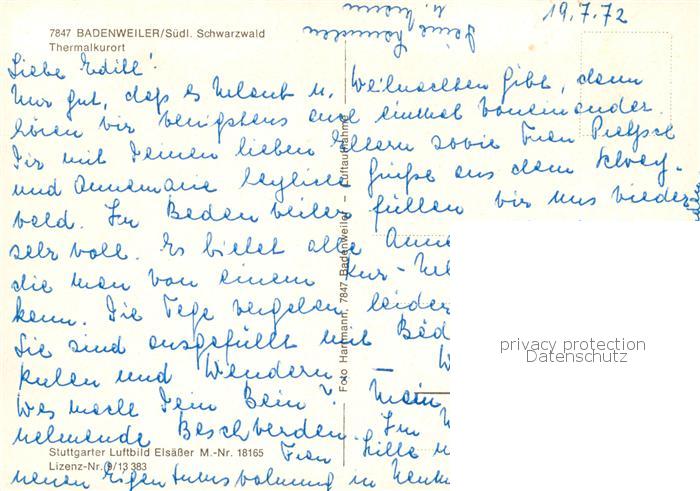 19.7.72
7847 BADENWEILER/Südl. Schwarzwald
Thermalkurort
Liebe Edill!
Nur gut, daß es Urlaub u. Weihnachten gibt, denn
hören wir wenigstens erst einmal voneinander.
Dir mit Deinen lieben Eltern sowie Frau
und Annemarie herzliche Grüße aus dem Schwarz-
wald. In Badenweiler fühlen wir uns wieder
sehr wohl. Es bietet alle
die man von einem Kur-
kann. Die Tage vergehen leider
Sie sind ausgefüllt mit
und Wandern.
Was macht Dein Bein? Mein
nehmende Beschwerden. Im
Frau Hille
neuen Eigentumswohnung in
Foto Hartmann, 7847 Badenweiler – Luftaufnahme
Stuttgarter Luftbild Elsäßer M.-Nr. 18165
Lizenz-Nr. 9/13 383
privacy protection
Datenschutz